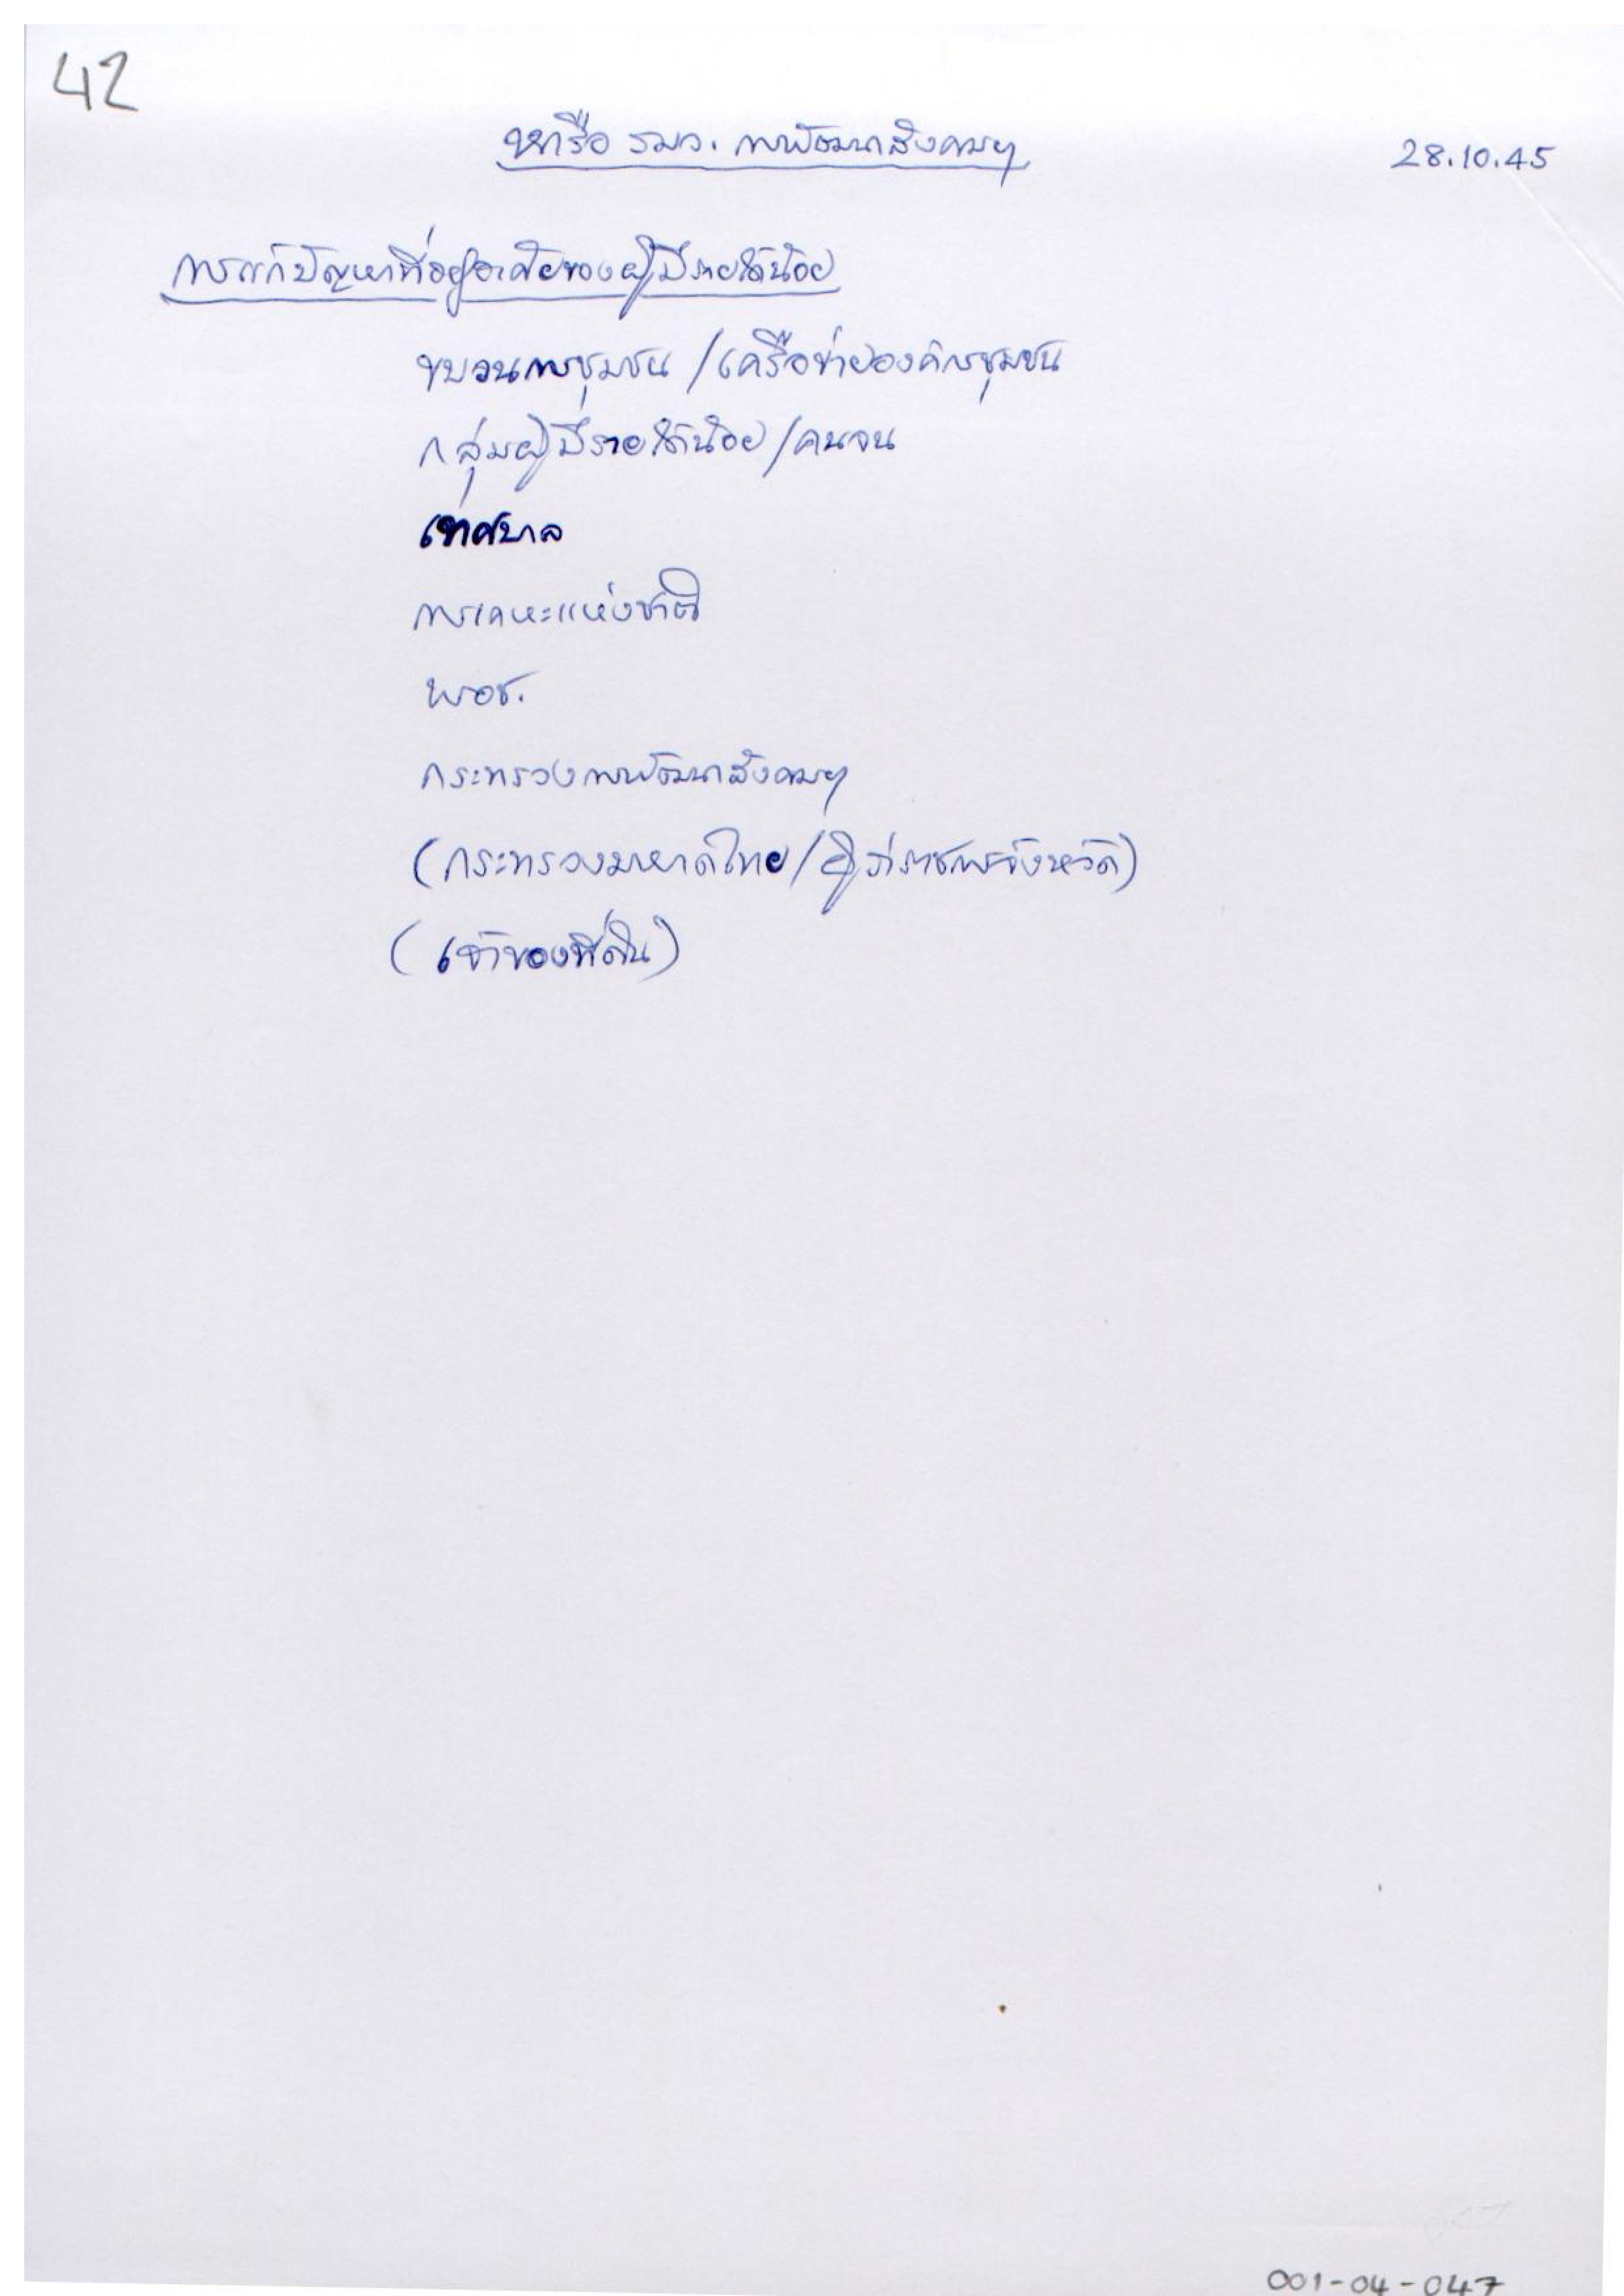 42
หารือ รมว. การพัฒนาสังคมฯ
28.10.45
การแก้ปัญหาที่อยู่อาศัยของผู้มีรายได้น้อย
ขบวนการชุมชน / เครือข่ายองค์กรชุมชน
กลุ่มผู้มีรายได้น้อย / คนจน
เทศบาล
การเคหะแห่งชาติ
พอช.
กระทรวงการพัฒนาสังคมฯ
(กระทรวงมหาดไทย / ผู้ว่าราชการจังหวัด)
(เจ้าของที่ดิน)
001-04-047